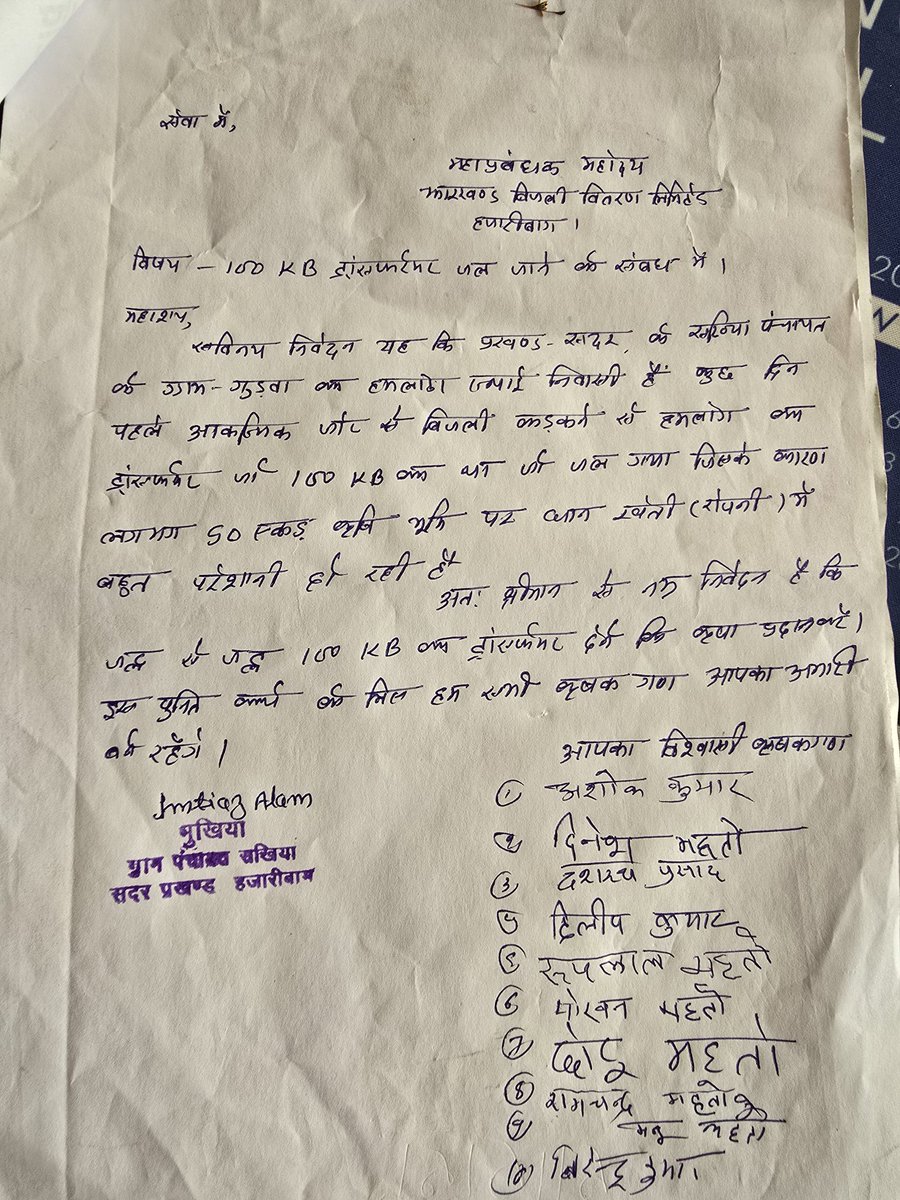 सेवा में,
महाप्रबंधक महोदय
झारखण्ड बिजली वितरण लिमिटेड
हजारीबाग।
विषय - 100 KB ट्रांसफर्मर जल जाने के संबंध में।
महाशय,
सविनय निवेदन यह कि प्रखण्ड-सदर, के सखिया पंचायत
के ग्राम-गुडवा का हमलोग स्थाई निवासी है कुछ दिन
पहले आकस्मिक जोर से बिजली कड़कने से हमलोग का
ट्रांसफर्मर जो 100 KB का था जो जल गया जिसके कारण
लगभग 50 एकड़ कृषि भूमि पर धान खेती (रोपनी) में
बहुत परेशानी हो रही है
अतः श्रीमान से नम्र निवेदन है कि
जल्द से जल्द 100 KB का ट्रांसफर्मर देने कि कृपा प्रदान करें।
इस पुनित कार्य के लिए हम सभी कृषक गण आपका अभारी
बने रहेंगे।
आपका विश्वासी कृषकगण
Imtiaz Alam
मुखिया
ग्राम पंचायत सखिया
सदर प्रखण्ड हजारीबाग
① अशोक कुमार
② दिनेश महतो
③ दशरथ प्रसाद
④ दिलीप कुमार
⑤ रूपलाल महतो
⑥ महतो
⑦ छोटू महतो
⑧ रामचन्द्र महतो
⑨ महतो
⑩